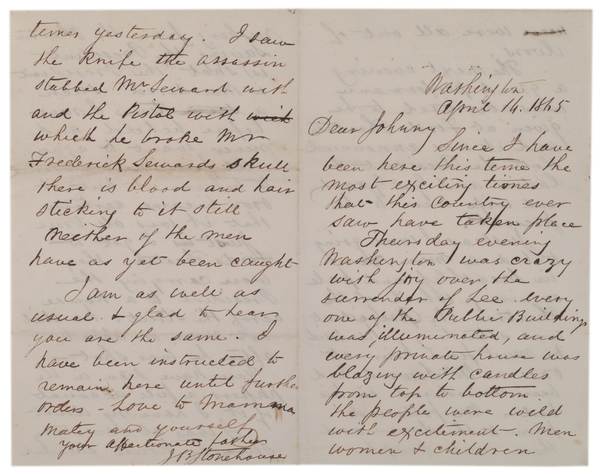 Washington
April 14. 1865
Dear Johnny
Since I have
been here this time the
most exciting times
that this country ever
saw have taken place
Thursday evening
Washington was crazy
with joy over the
surrender of Lee. Every
one of the Public Buildings
was illuminated, and
every private house was
blazing with candles
from top to bottom.
the people were wild
with excitement. Men
women & children
times yesterday. I saw
the knife the assassin
stabbed Mr Seward with
and the Pistol with
which he broke Mr
Frederick Sewards skull
there is blood and hair
sticking to it still
Neither of the men
have as yet been caught
I am as well as
usual & glad to hear
you are the same. I
have been instructed to
remain here until further
orders - Love to Mamma
Matey and yourself
Your affectionate father
J B Stonehouse